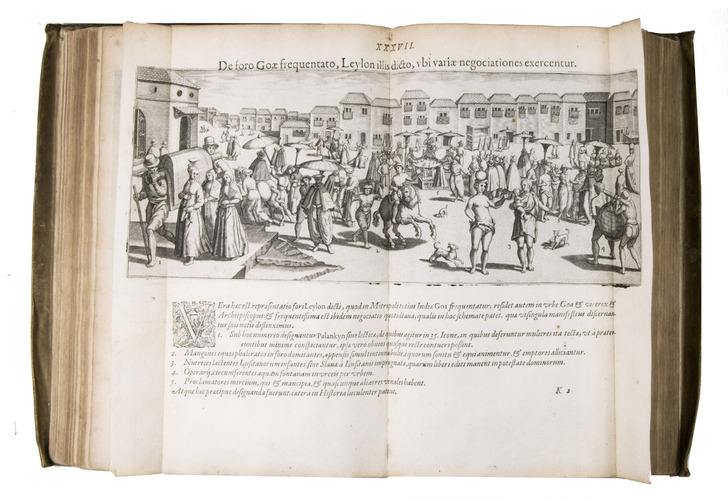 XXXVII.
De foro Goæ frequentato, Leylon illis dicto, vbi variæ negociationes exercentur.
VEra hæc est repræsentatio fori Leylon dicti, quod in Metropoli totius Indiæ Goa frequentatur, residet autem in vrbe Goa & vicerex &
Archiepiscopus: & frequentissima est ibidem negociatio quotidiana, qualis in hoc schemate patet. qua vt singula manifestius discernan-
tur suis notis distinximus.
1. Sub hoc numero designantur Palankyn sive lectica, de quibus agitur in 35. Icone, in quibus deferuntur mulieres ita tecta, vt à præter-
euntibus minime conspiciantur, ipsæ vero obuios quosque recte contueri possint.
2. Mangones equos phaleratos in foro domitantes, appensis simul tintinnabulis, quorum sonitu & equi animentur, & emptores alliciantur.
3. Nutrices lactentes Lusitanorum infantes sive Slava à Lusitanis impregnata, quarum liberi editi manent in potestate dominorum.
4. Operarij, circumferentes aquam fontanam in vrceis per vrbem.
5. Proclamatores mercium, qui & mancipia, & quascunque alias res venales habent.
Atque hæc præcipue designanda fuerunt: cætera in Historia luculenter patent.
K 2